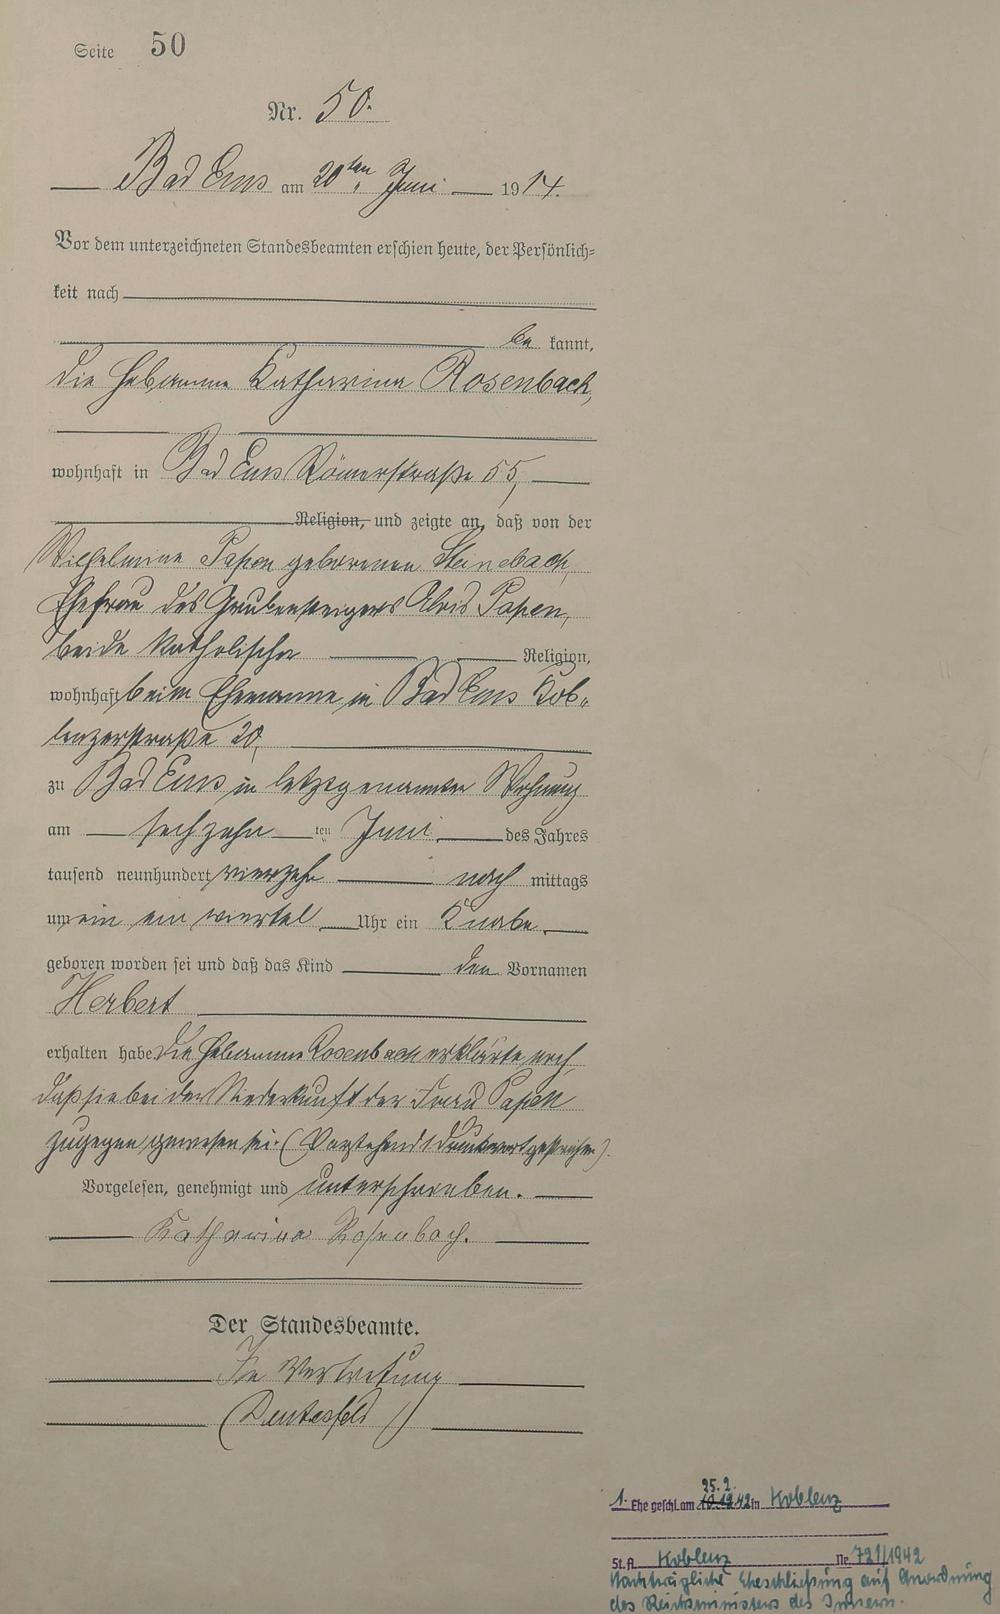 Seite 50
Nr. 50.
Bad Ems am 20ten Juni 1914.
Vor dem unterzeichneten Standesbeamten erschien heute, der Persönlich-
keit nach
be kannt,
die Hebamme Katharina Rosenbach,
wohnhaft in Bad Ems Römerstraße 55,
Religion, und zeigte an, daß von der
Wilhelmine Papen geborenen Steinebach,
Ehefrau des Grubensteigers Alois Papen,
beide katholischer Religion,
wohnhaft beim Ehemanne in Bad Ems Kob-
lenzerstraße 20,
zu Bad Ems in letztgenannter Wohnung
am sechzehn ten Juni des Jahres
tausend neunhundert vierzehn nach mittags
um ein ein viertel Uhr ein Knabe
geboren worden sei und daß das Kind den Vornamen
Herbert
erhalten habe. Die Hebamme Rosenbach erklärte noch,
daß sie bei der Niederkunft der Frau Papen
zugegen gewesen sei. (Vorstehend 1 Druckwort gestrichen).
Vorgelesen, genehmigt und unterschrieben.
Katharina Rosenbach.
Der Standesbeamte.
In Vertretung
25.2.
1. Ehe geschl. am 42 in Koblenz
St. A. Koblenz Nr. 721/1942
Nachträgliche Eheschließung auf Anordnung
des Reichsministers des Innern.